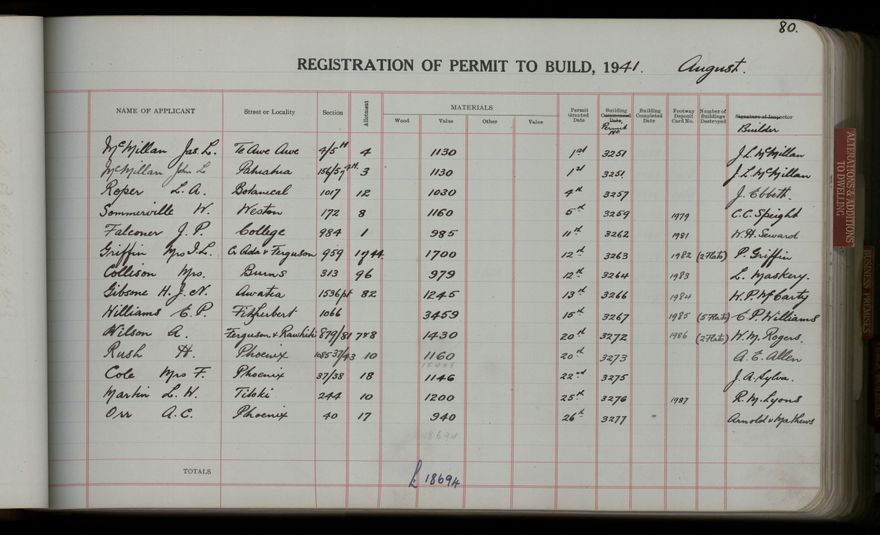 80.
REGISTRATION OF PERMIT TO BUILD, 1941. August.
NAME OF APPLICANT Street or Locality Section Allotment MATERIALS Permit Granted Date Building Commenced Date Permit No Building Completed Date Footway Deposit Card No. Number of Buildings Destroyed Signature of Inspector Builder
Wood Value Other Value
McMillan Jas. L. Te Awe Awe 4/5 4 1130 1st 3251 J L McMillan
McMillan John L Pahiatua 156/57 3 1130 1st 3251 J. L. McMillan
Roper L. A. Botanical 1017 12 1030 4th 3257 J. Ebbett.
Sommerville W. Weston 172 8 1160 5th 3259 1979 C. C. Speight
Falconer J. P. College 984 1 985 11th 3262 1981 W. H. Seward
Griffin Mrs I. L. Cr Ada & Ferguson 959 1700 12th 3263 1982 (2 Flats) P. Griffin
Collison Mrs. Burns 313 96 979 12th 3264 1983 L. Maskery.
Gibsone H. J. N. Awatea 1536 pt 82 1245 13th 3266 1984 W. P. McCarty
Williams C. P. Fitzherbert 1066 3459 15th 3267 1985 (5 Flats) C P. Williams
Wilson A. Ferguson & Rawhiti 879/81 7&8 1430 20th 3272 1986 (2 Flats) W. M. Rogers.
Rush H. Phoenix 10 1160 20th 3273 A. E. Allen
Cole Mrs F. Phoenix 37/38 18 1146 22nd 3275 J. A. Sylva.
Martin L. W. Titoki 244 10 1200 25th 3276 1987 R. M. Lyons
Orr A. C. Phoenix 40 17 940 26th 3277 Arnold & Mathews
18694
TOTALS £ 18694
ALTERATIONS & ADDITIONS
TO DWELLING
BUSINESS PREMISES